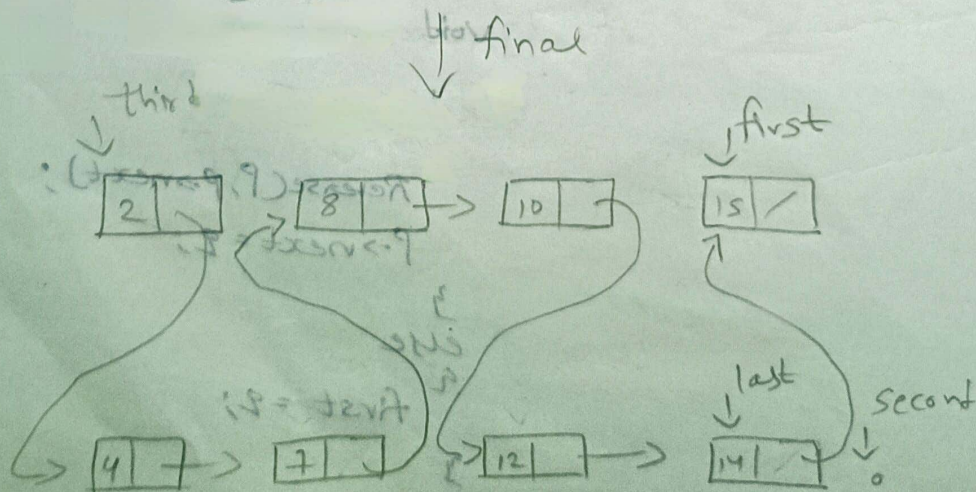 final
third
first
2 8 10 15
last
second
4 7 12 14